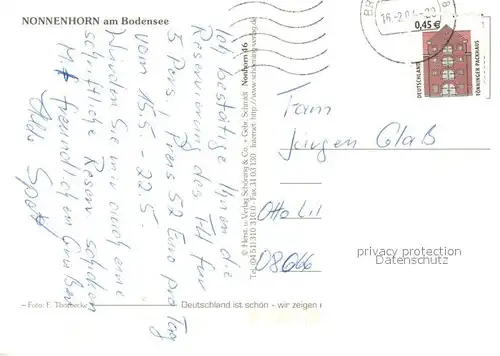 NONNENHORN am Bodensee
Ich bestätige Ihnen die
Reservierung des FH für
5 Pers, Preis 52 Euro pro Tag
vom 15.5 - 22.5.
Würden Sie mir auch eine
schriftliche Reserv schicken
Mit freundlichen Grüßen
Nonhorn 46
© Herst. u. Verlag Schöning & Co. + Gebr. Schmidt
Tel. (0451) 310 310 · Fax 31 03 130 Internet http://www.schoening-verlag.de
– Foto: F. Thorbecke
Deutschland ist schön - wir zeigen
16.-2.04-20
0,45 €
DEUTSCHLAND
TÖNNINGER PACKHAUS
Jürgen Glaß
Otto
privacy protection
Datenschutz